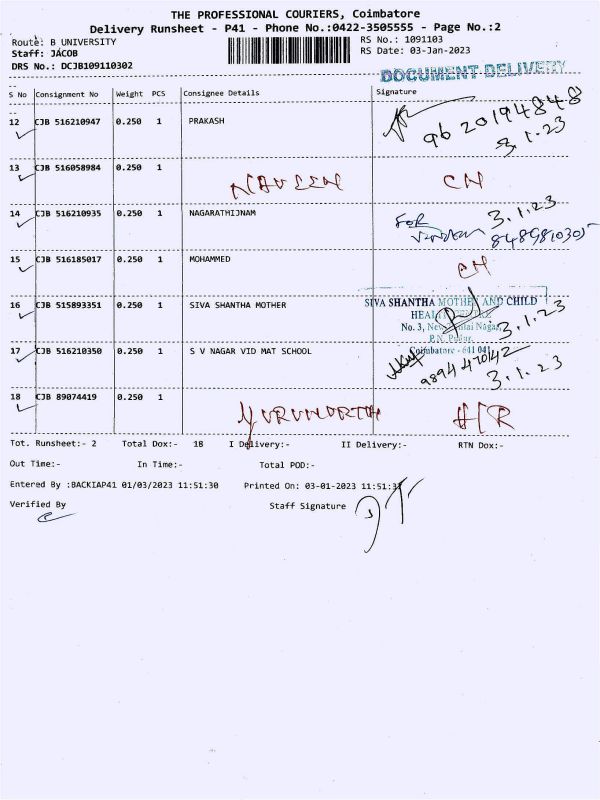 THE PROFESSIONAL COURIERS, Coimbatore
Delivery Runsheet - P41 - Phone No.:0422-3505555 - Page No.:2
Route: B UNIVERSITY
RS No.: 1091103
Staff: JACOB
RS Date: 03-Jan-2023
DRS No.: DCJB109110302
DOCUMENT DELIVERY
S No Consignment No Weight PCS Consignee Details Signature
12 CJB 516210947 0.250 1 PRAKASH
9620194848
3.1.23
13 CJB 516058984 0.250 1
NAVEEN CH
14 CJB 516210935 0.250 1 NAGARATHIJNAM
For 3.1.23
8489810305
15 CJB 516185017 0.250 1 MOHAMMED
CH
16 CJB 515893351 0.250 1 SIVA SHANTHA MOTHER
SIVA SHANTHA MOTHER AND CHILD
No. 3, Nagar,
3.1.23
Coimbatore - 641 041
17 CJB 516210350 0.250 1 S V NAGAR VID MAT SCHOOL
9894470142
3.1.23
18 CJB 89074419 0.250 1
H/R
Tot. Runsheet:- 2 Total Dox:- 18 I Delivery:- II Delivery:- RTN Dox:-
Out Time:- In Time:- Total POD:-
Entered By :BACKIAP41 01/03/2023 11:51:30 Printed On: 03-01-2023 11:51:31
Verified By Staff Signature